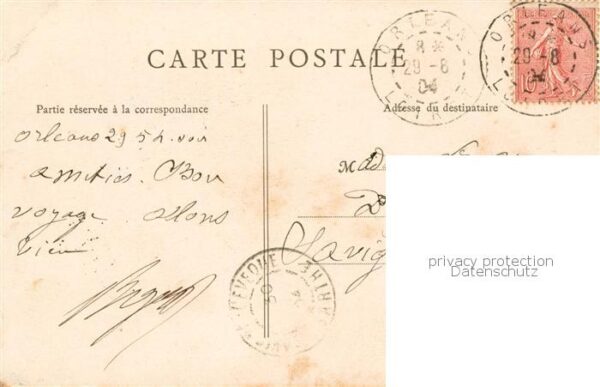 CARTE POSTALE
ORLEANS
8*
29-8
04
LOIRET
ORLEANS
8*
29-8
04
Partie réservée à la correspondance
Adresse du destinataire
orleans 29 5h. soir
amitiés. Bon
voyage. Allons
bien
Mad
Savig
privacy protection
Datenschutz